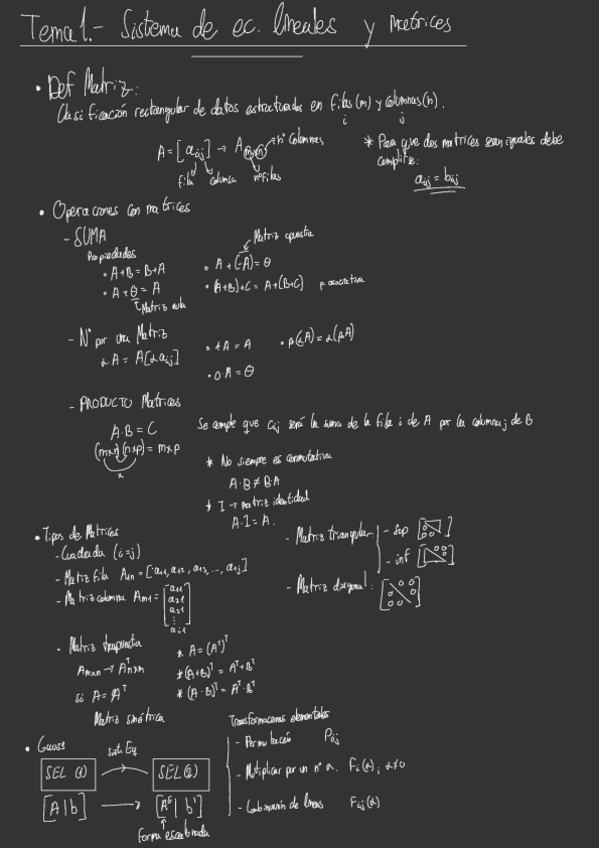 Tema 1.- Sistema de ec. lineales y matrices
• Def Matriz:
Clasificación rectangular de datos estructurados en filas (m) y columnas (n).
i j
A = [a_ij] → A_mxn → nº columnas
fila columna nº filas
* Para que dos matrices sean iguales debe
cumplirse:
a_ij = b_ij
• Operaciones con matrices
- SUMA
Propiedades
• A+B = B+A
• A+θ = A
Matriz nula
Matriz opuesta
• A+(-A) = θ
• (A+B)+C = A+(B+C) p. asociativa
- Nº por una Matriz
αA = A[αa_ij]
• 1A = A
• β(αA) = α(βA)
• 0·A = θ
- PRODUCTO Matrices
A·B = C
(mxn)(nxp) = mxp
Se cumple que c_ij será la suma de la fila i de A por la columna j de B
* No siempre es conmutativa
A·B ≠ B·A
* I → matriz identidad
A·I = A.
• Tipos de Matrices
- Cuadrada (i=j)
- Matriz fila A_1n = [a_11, a_12, a_13, ..., a_1j]
- Matriz columna A_m1 = [a_11 a_21 a_31 ⋮ a_i1]
- Matriz triangular: - sup
- inf
- Matriz diagonal:
- Matriz traspuesta
A_mxn → A^T_nxm
si A = A^T
Matriz simétrica
* A = (A^T)^T
* (A+B)^T = A^T+B^T
* (A·B)^T = A^T·B^T
• Gauss
SEL (1) SEL (2)
[A|b] → [A^E | b']
forma escalonada
Transformaciones elementales
- Permutación P_ij
- Multiplicar por un nº α. F_i(α), α≠0
- Combinación de líneas F_ij(α)